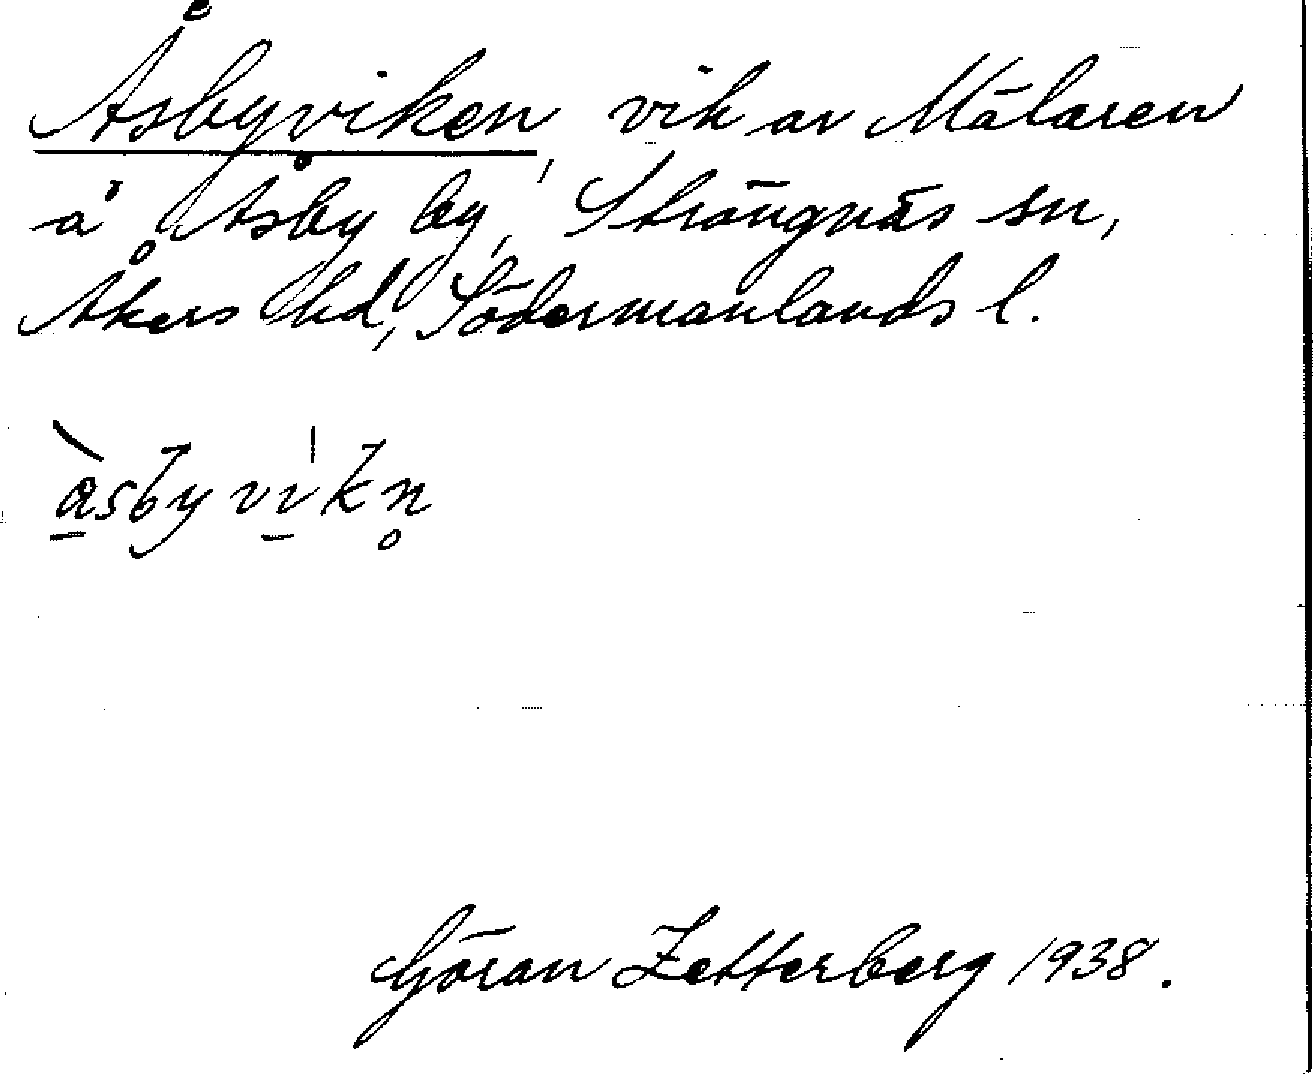 Åsbyviken, vik av Mälaren
å Åsby by, Strängnäs sn,
Åkers hd, Södermanlands l.
àsbyvikn̥
Göran Zetterberg 1938.